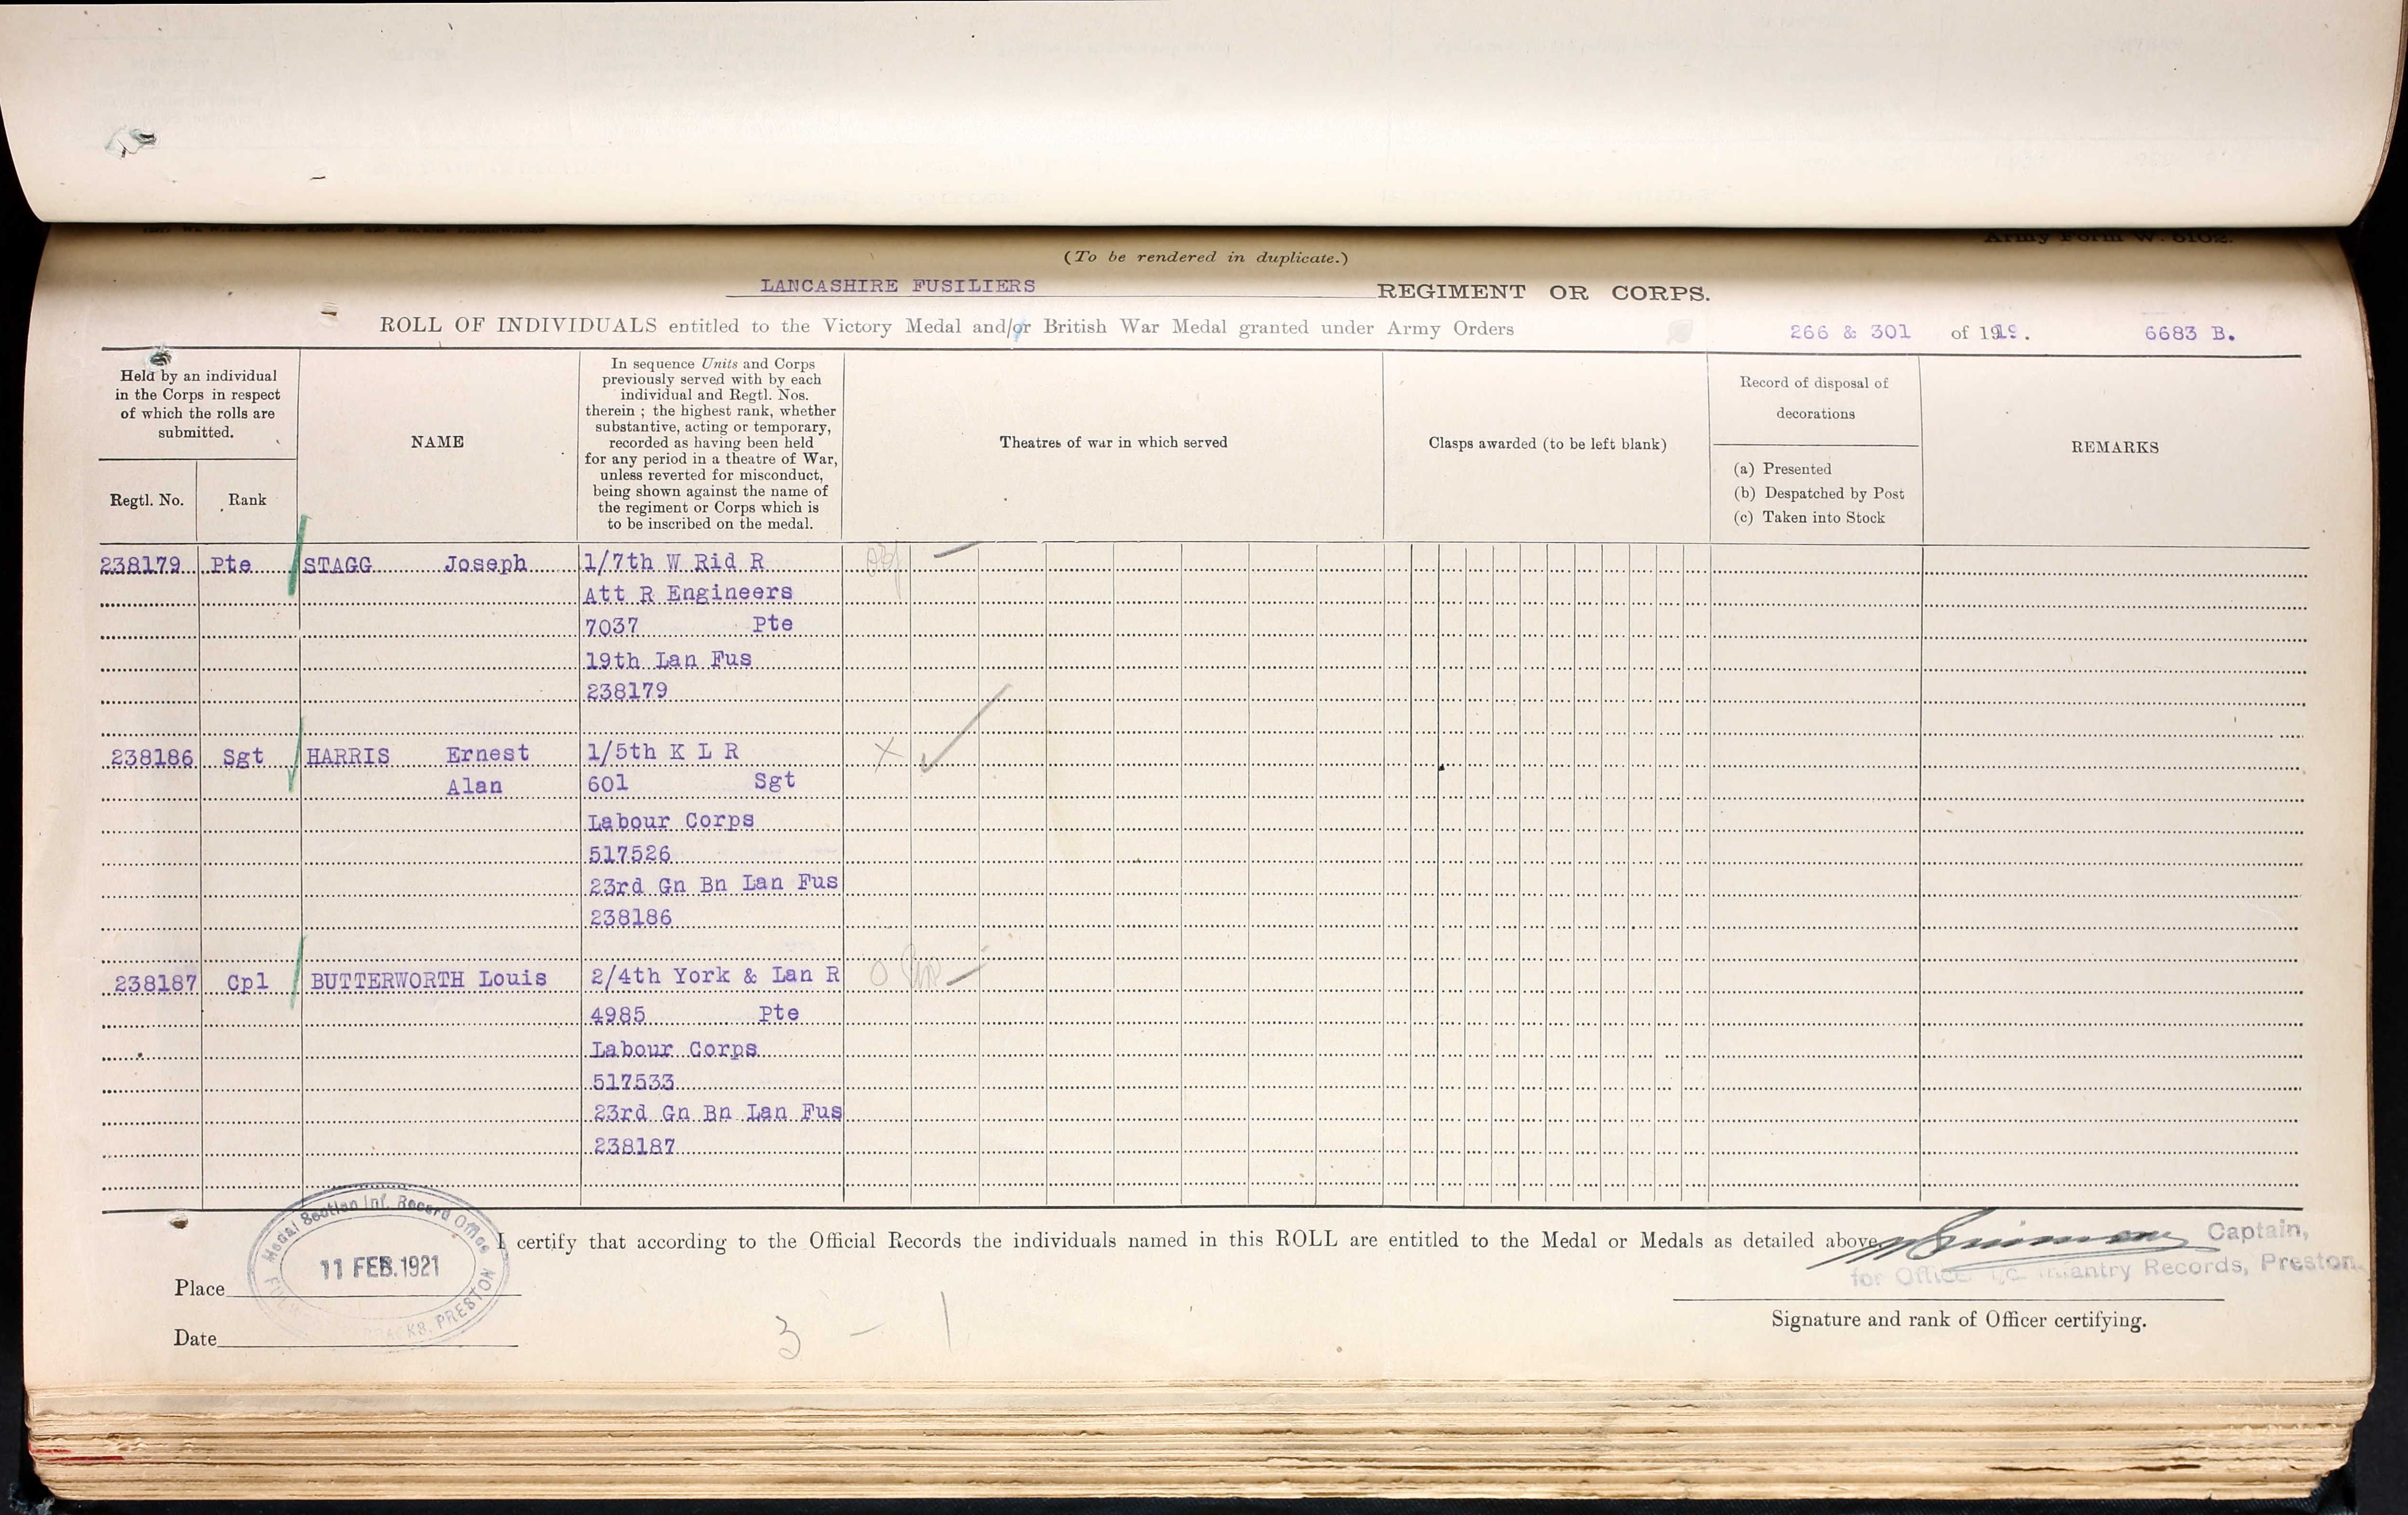 Army Form W. 5102.
(To be rendered in duplicate.)
LANCASHIRE FUSILIERS REGIMENT OR CORPS.
ROLL OF INDIVIDUALS entitled to the Victory Medal and/or British War Medal granted under Army Orders 266 & 301 of 1919. 6683 B.
Held by an individual
in the Corps in respect
of which the rolls are
submitted.
Regtl. No.
Rank
NAME
In sequence Units and Corps
previously served with by each
individual and Regtl. Nos.
therein ; the highest rank, whether
substantive, acting or temporary,
recorded as having been held
for any period in a theatre of War,
unless reverted for misconduct,
being shown against the name of
the regiment or Corps which is
to be inscribed on the medal.
Theatres of war in which served
Clasps awarded (to be left blank)
Record of disposal of
decorations
(a) Presented
(b) Despatched by Post
(c) Taken into Stock
REMARKS
238179 Pte STAGG Joseph 1/7th W Rid R
Att R Engineers
7037 Pte
19th Lan Fus
238179
238186 Sgt HARRIS Ernest 1/5th K L R X
Alan 601 Sgt
Labour Corps
517526
23rd Gn Bn Lan Fus
238186
238187 Cpl BUTTERWORTH Louis 2/4th York & Lan R
4985 Pte
Labour Corps
517533
23rd Gn Bn Lan Fus
238187
Medal Section Inf. Record Office
11 FEB. 1921
PRESTON
I certify that according to the Official Records the individuals named in this ROLL are entitled to the Medal or Medals as detailed above.
Captain,
for Officer i/c Infantry Records, Preston.
Place
Date
3 - 1
Signature and rank of Officer certifying.